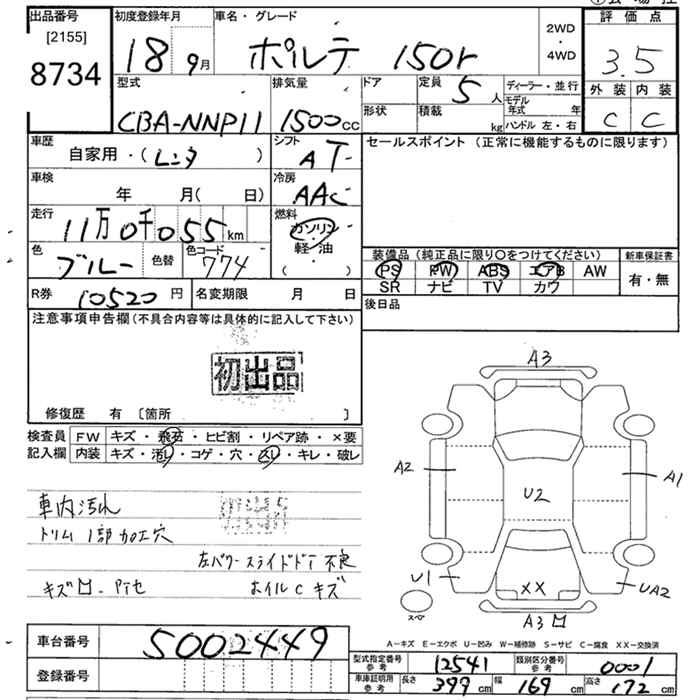 出品番号
[2155]
8734
初度登録年月
18 9月
車名・グレード
ポルテ 150r
2WD
・
4WD
評価点
3.5
外装 内装
C C
型式
CBA-NNP11
排気量
1500cc
ドア
定員 5人
ディーラー・並行
形状
積載 kg
モデル年式 年
ハンドル 左・右
車歴
自家用・(レンタ)
シフト
AT
セールスポイント (正常に機能するものに限ります)
車検
年 月(日)
冷房
AAC
走行
11万0千055km
燃料
ガソリン
軽・油
( )
色
ブルー
色替
色コード
774
装備品 (純正品に限り○をつけてください)
新車保証書
PS PW ABS エアB AW
SR ナビ TV カワ
有・無
R券 10520円
名変期限 月 日
後日品
注意事項申告欄(不具合内容等は具体的に記入して下さい)
初出品
修復歴 有 〔箇所 〕
検査員 FW キズ・飛石・ヒビ割・リペア跡・×要
記入欄 内装 キズ・汚れ・コゲ・穴・スレ・キレ・破レ
車内汚れ
トリム1部加工穴
左パワースライドドア不良
ホイルCキズ
A3
A2
A1
U2
U1
XX
UA2
スペア
A3
A-キズ E-エクボ U-凹み W-補修跡 S-サビ C-腐食 XX-交換済
車台番号
5002449
登録番号
型式指定番号
参考
12541
類別区分番号
参考
0001
車庫証明用
参考
長さ 399cm
幅 169cm
高さ 172cm